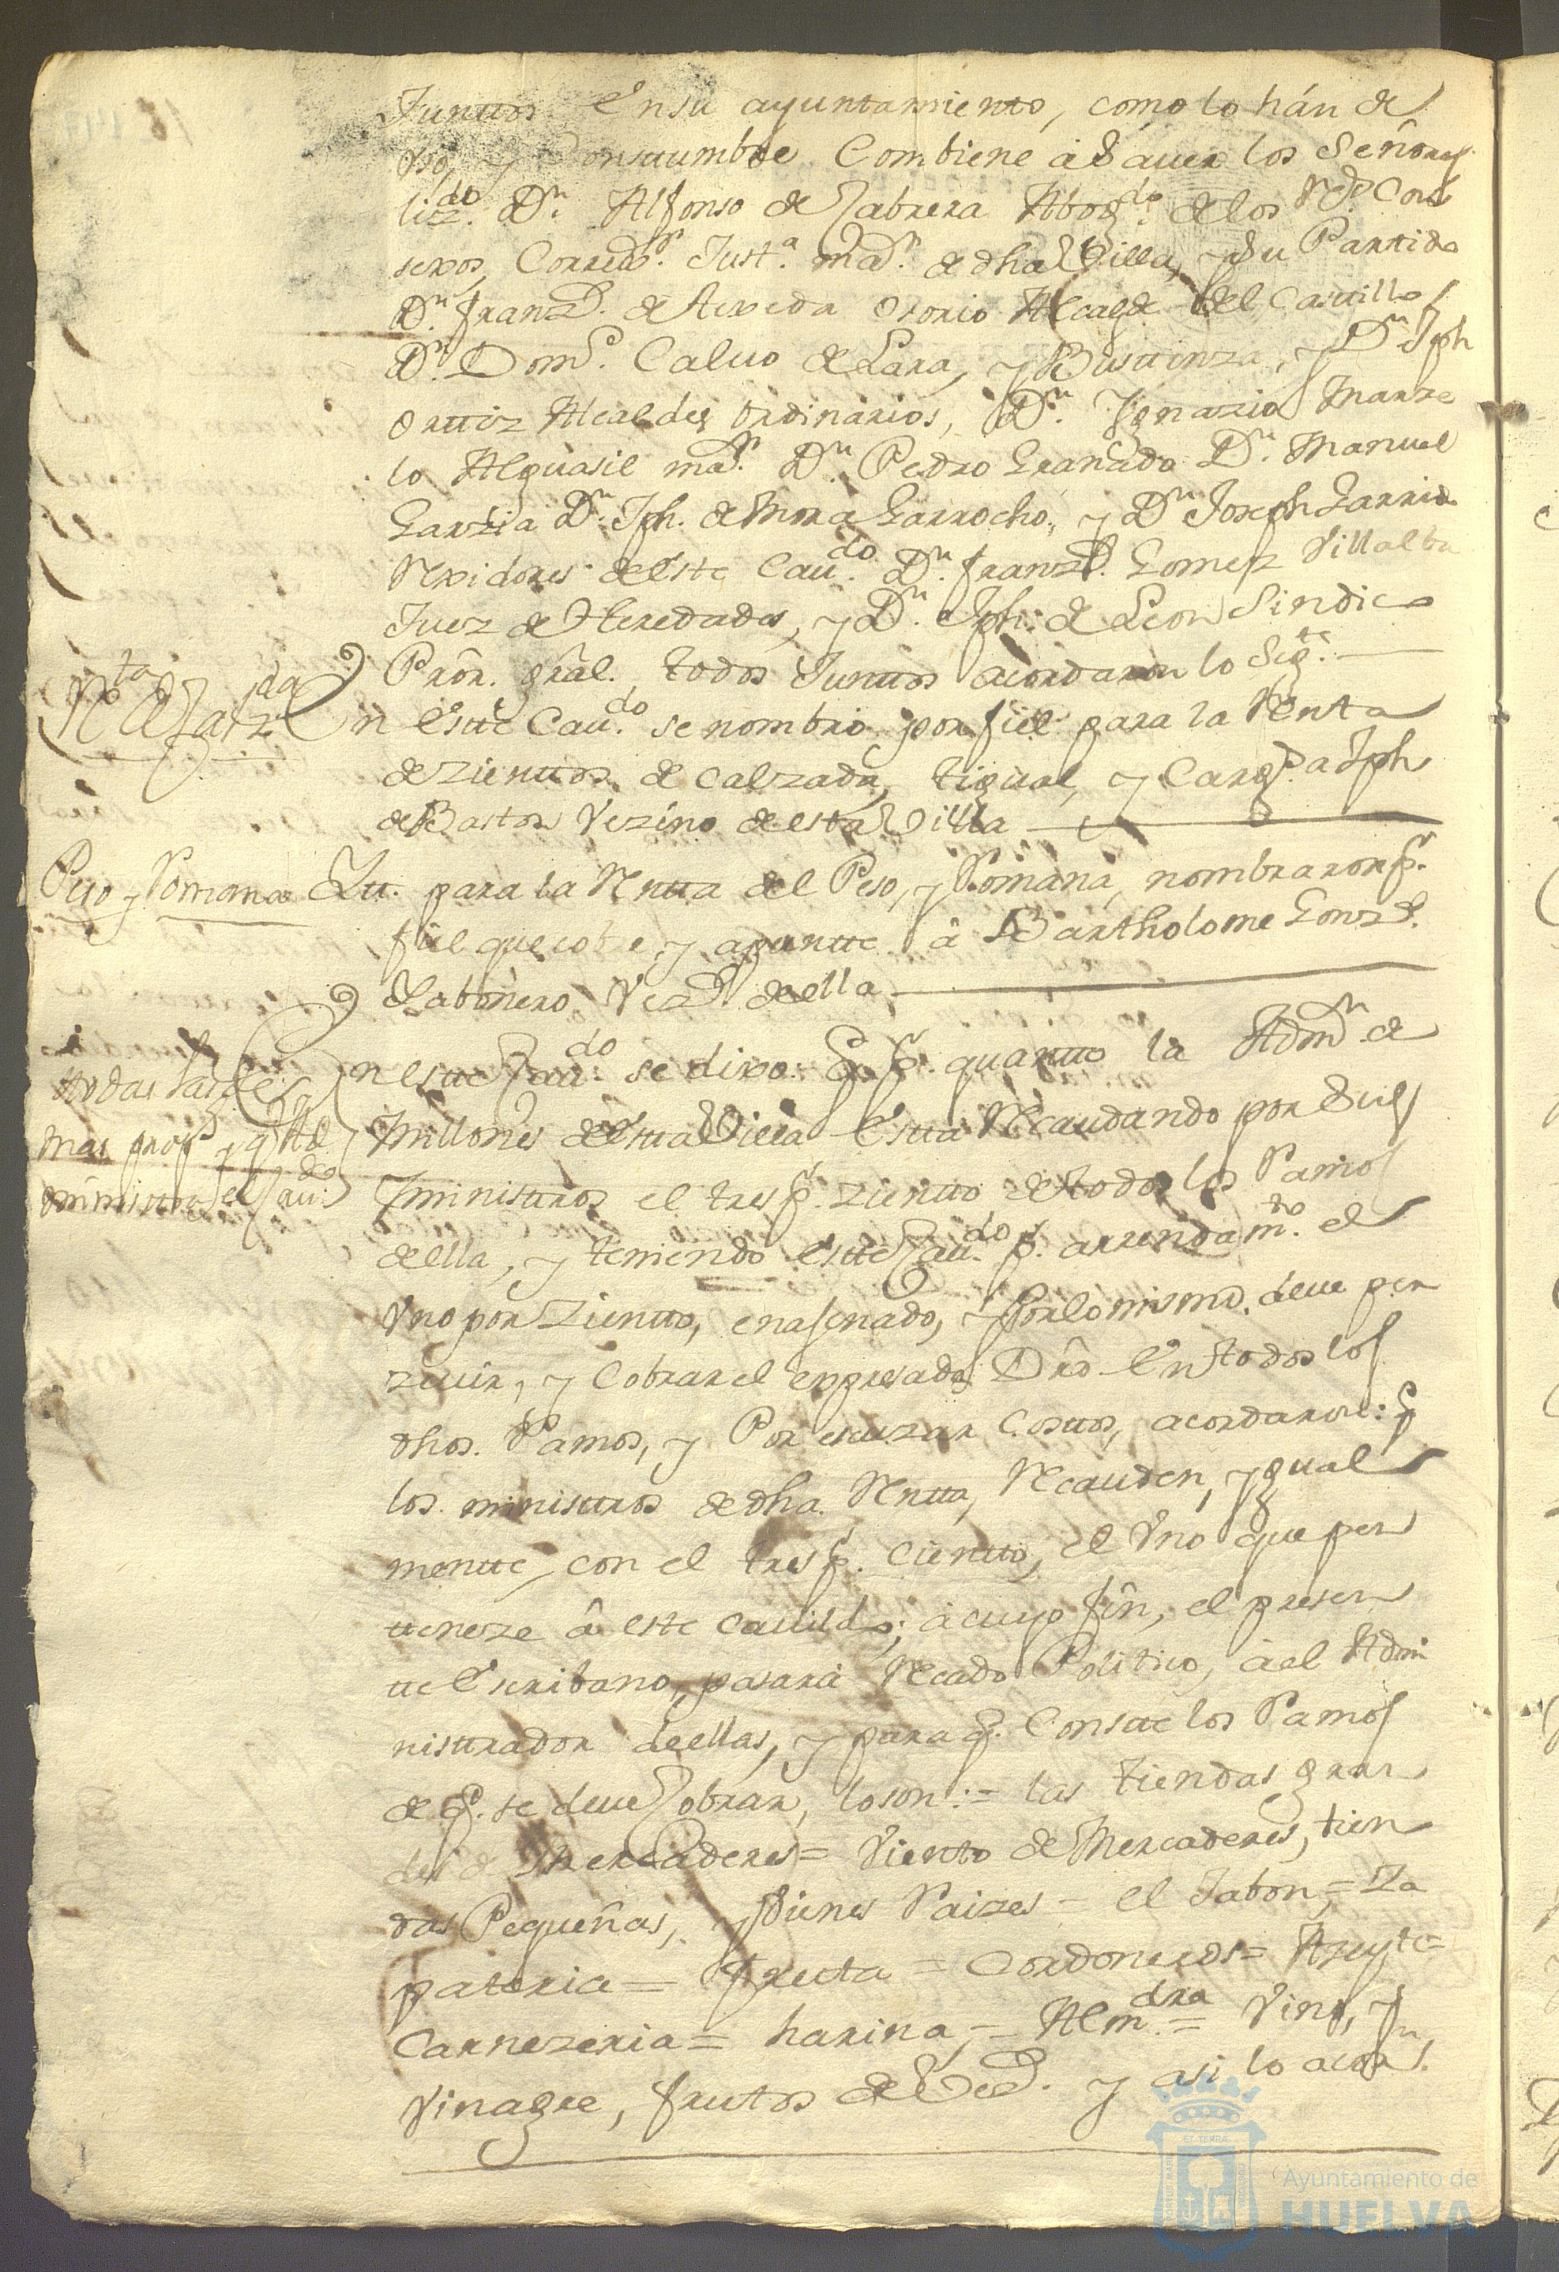 Junttos en su ayuntamiento, como lo hán de
vso, y Consttumbre Combiene â Sauer los Señores
lizdo. Dn. Alfonso de Cabrera Abogdo. de los Rs. Con
sexos, Correxr. Justa. mar. de dha Villa, y su Partido
Dn. Franzco. de Azeveda Ozorio Alcayde del Casttillo
Dn. Domo. Calvo de Lara, y Busttinza, y Dn. Jph
Orttiz Alcaldes Ordinarios, Dn. Ignazio Marze
lo Alguasil mar. Dn. Pedro Granado Dn. Manuel
Garzia Dn. Jph. de Mora Garrocho, y Dn. Joseph Garrido
Rexidores de este Caudo. Dn. Franzco. Gomez Villalba
Juez de Heredades, y Dn. Jph. de Leon Sindico
Prôr. grâl. todos Junttos acordaron lo Sigte.
Rta de Calzda
En estte Caudo. se nombrio por fiel para la Rentta
de zienttos de Calzada, tigual, y Cargo. a Jph
de Bastos Vezino de esta Villa
Peso y Romana
Ytt. para la Rentta del Peso, y Romana, nombraron pr.
fiel que cobre, y apuntte â Bartholome Gonzs.
Xabonero Vezo. de ella
todas las de
mas prop y q Ad
ministra el Caudo.
En estte Caudo. se dixo: Q. pr. quantto la Admn. de
Millones de estta Villa estta Recaudando por Sus
Ministtros el tres pr. zientto de todos los Ramos
de ella, y teniendo estte Caudo. pr. arrendamto. el
Vno por Zientto, enajenado, y Por lo mismo, deve per
zivir, y Cobrar el expresado Drô en todos los
dhos. Ramos, y Por escuzar Costtos, acordaron: q
los ministtros de dha. Rentta, Recauden, ygual
mentte, con el tres pr. Cientto, el Vno que per
tteneze â este Cauildo; â cuyo fin, el presen
tte Escribano, pasará Recado Politico, â el Admi
nisttrador de ellas, y para q. Constte los Ramos
de q. se deue Cobrar, lo son:= las tiendas gran
des de Mercaderes= Viento de Mercaderes, tien
das Pequeñas, y Vienes Raizes= el Jabon,= Za
pateria= Fruta= Cordoneros= Azeyte=
Carnezeria= harina,= Almdra= Vino, y
Vinagre, frutos de Vezo. y asi lo acorn.
Ayuntamiento de
HUELVA